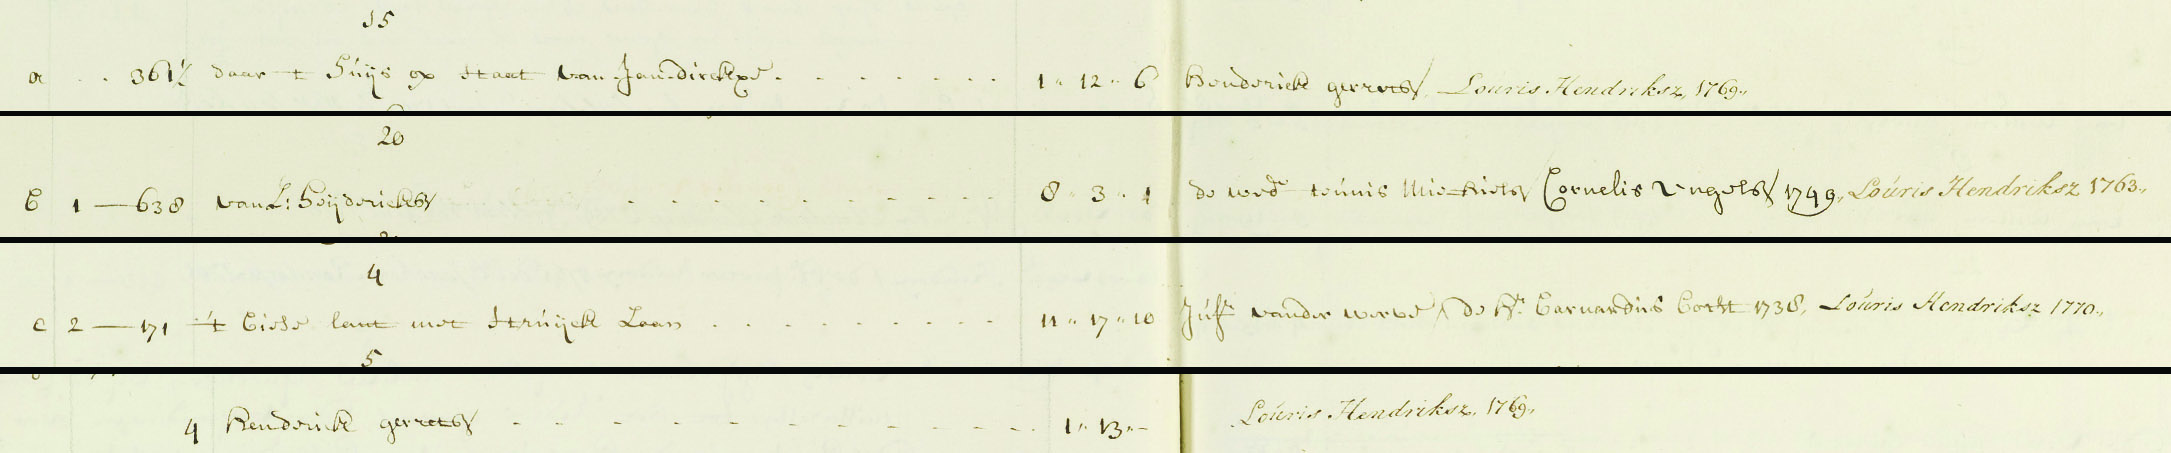 15
a . . 361½ daar t Huijs op staat van Jan dirckxe . . . . . . 1 " 12 " 6 Henderick gerrets Louris Hendriksz, 1769.,
20
b 1 — 638 van L: Heijdericks . . . . . . . . 8 " 3 " 1 de wede teunis Miechiels Cornelis Engels 1749, Louris Hendriksz 1763.,
4
c 2 — 171 't biese lant met Struijck Laan . . . . . . . 11 " 17 " 10 Jufr vander werve / de Hr. Barnardus 1738, Louris Hendriksz 1770.,
5
4 Henderick gerrets - - - - - - - - - - 1 " 13 " — Louris Hendriksz, 1769,